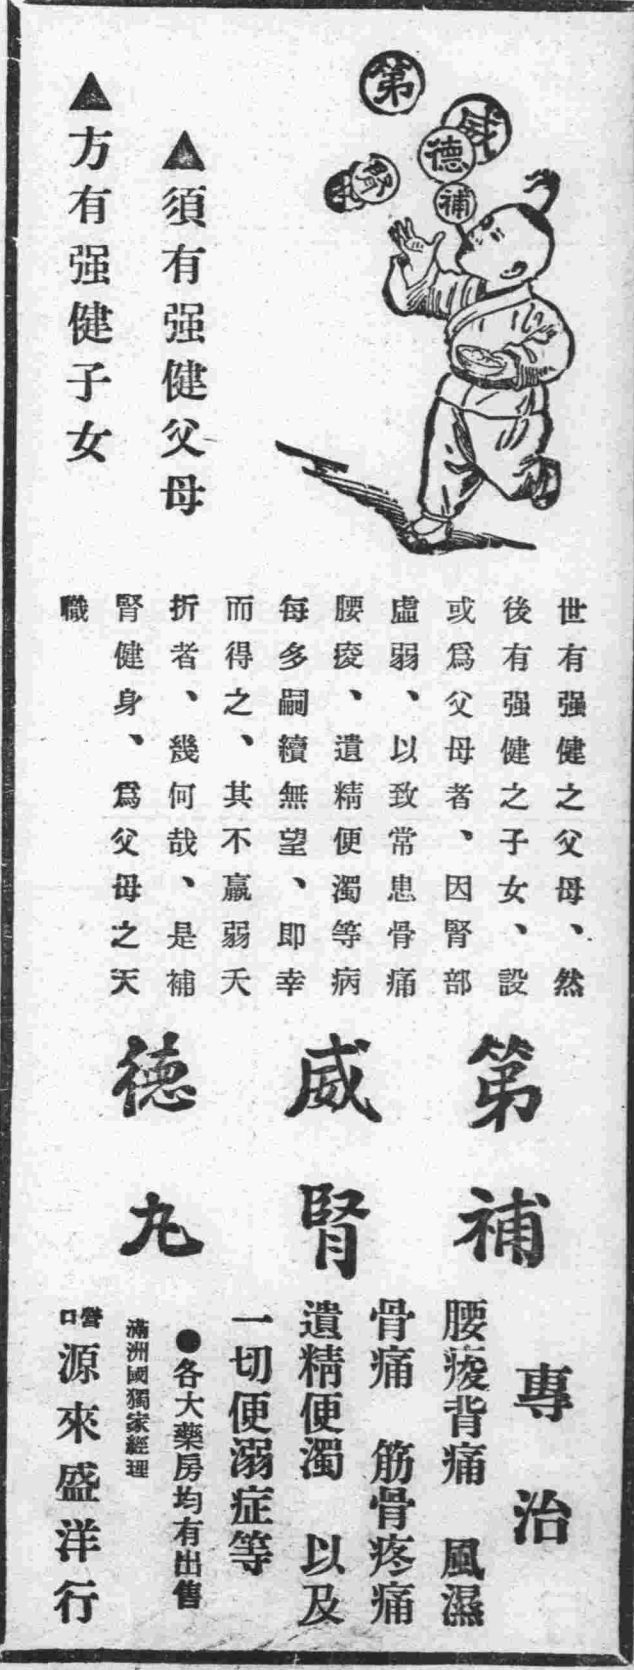 第
威
德
補
腎
丸
▲須有强健父母
▲方有强健子女
世有强健之父母、然
後有强健之子女、設
或爲父母者、因腎部
虛弱、以致常患骨痛
腰痠、遺精便濁等病
每多嗣續無望、即幸
而得之、其不羸弱夭
折者、幾何哉、是補
腎健身、爲父母之天
職
第威德
補腎丸
專治
腰痠背痛 風濕
骨痛 筋骨疼痛
遺精便濁 以及
一切便溺症等
●各大藥房均有出售
滿洲國獨家經理
營口源來盛洋行